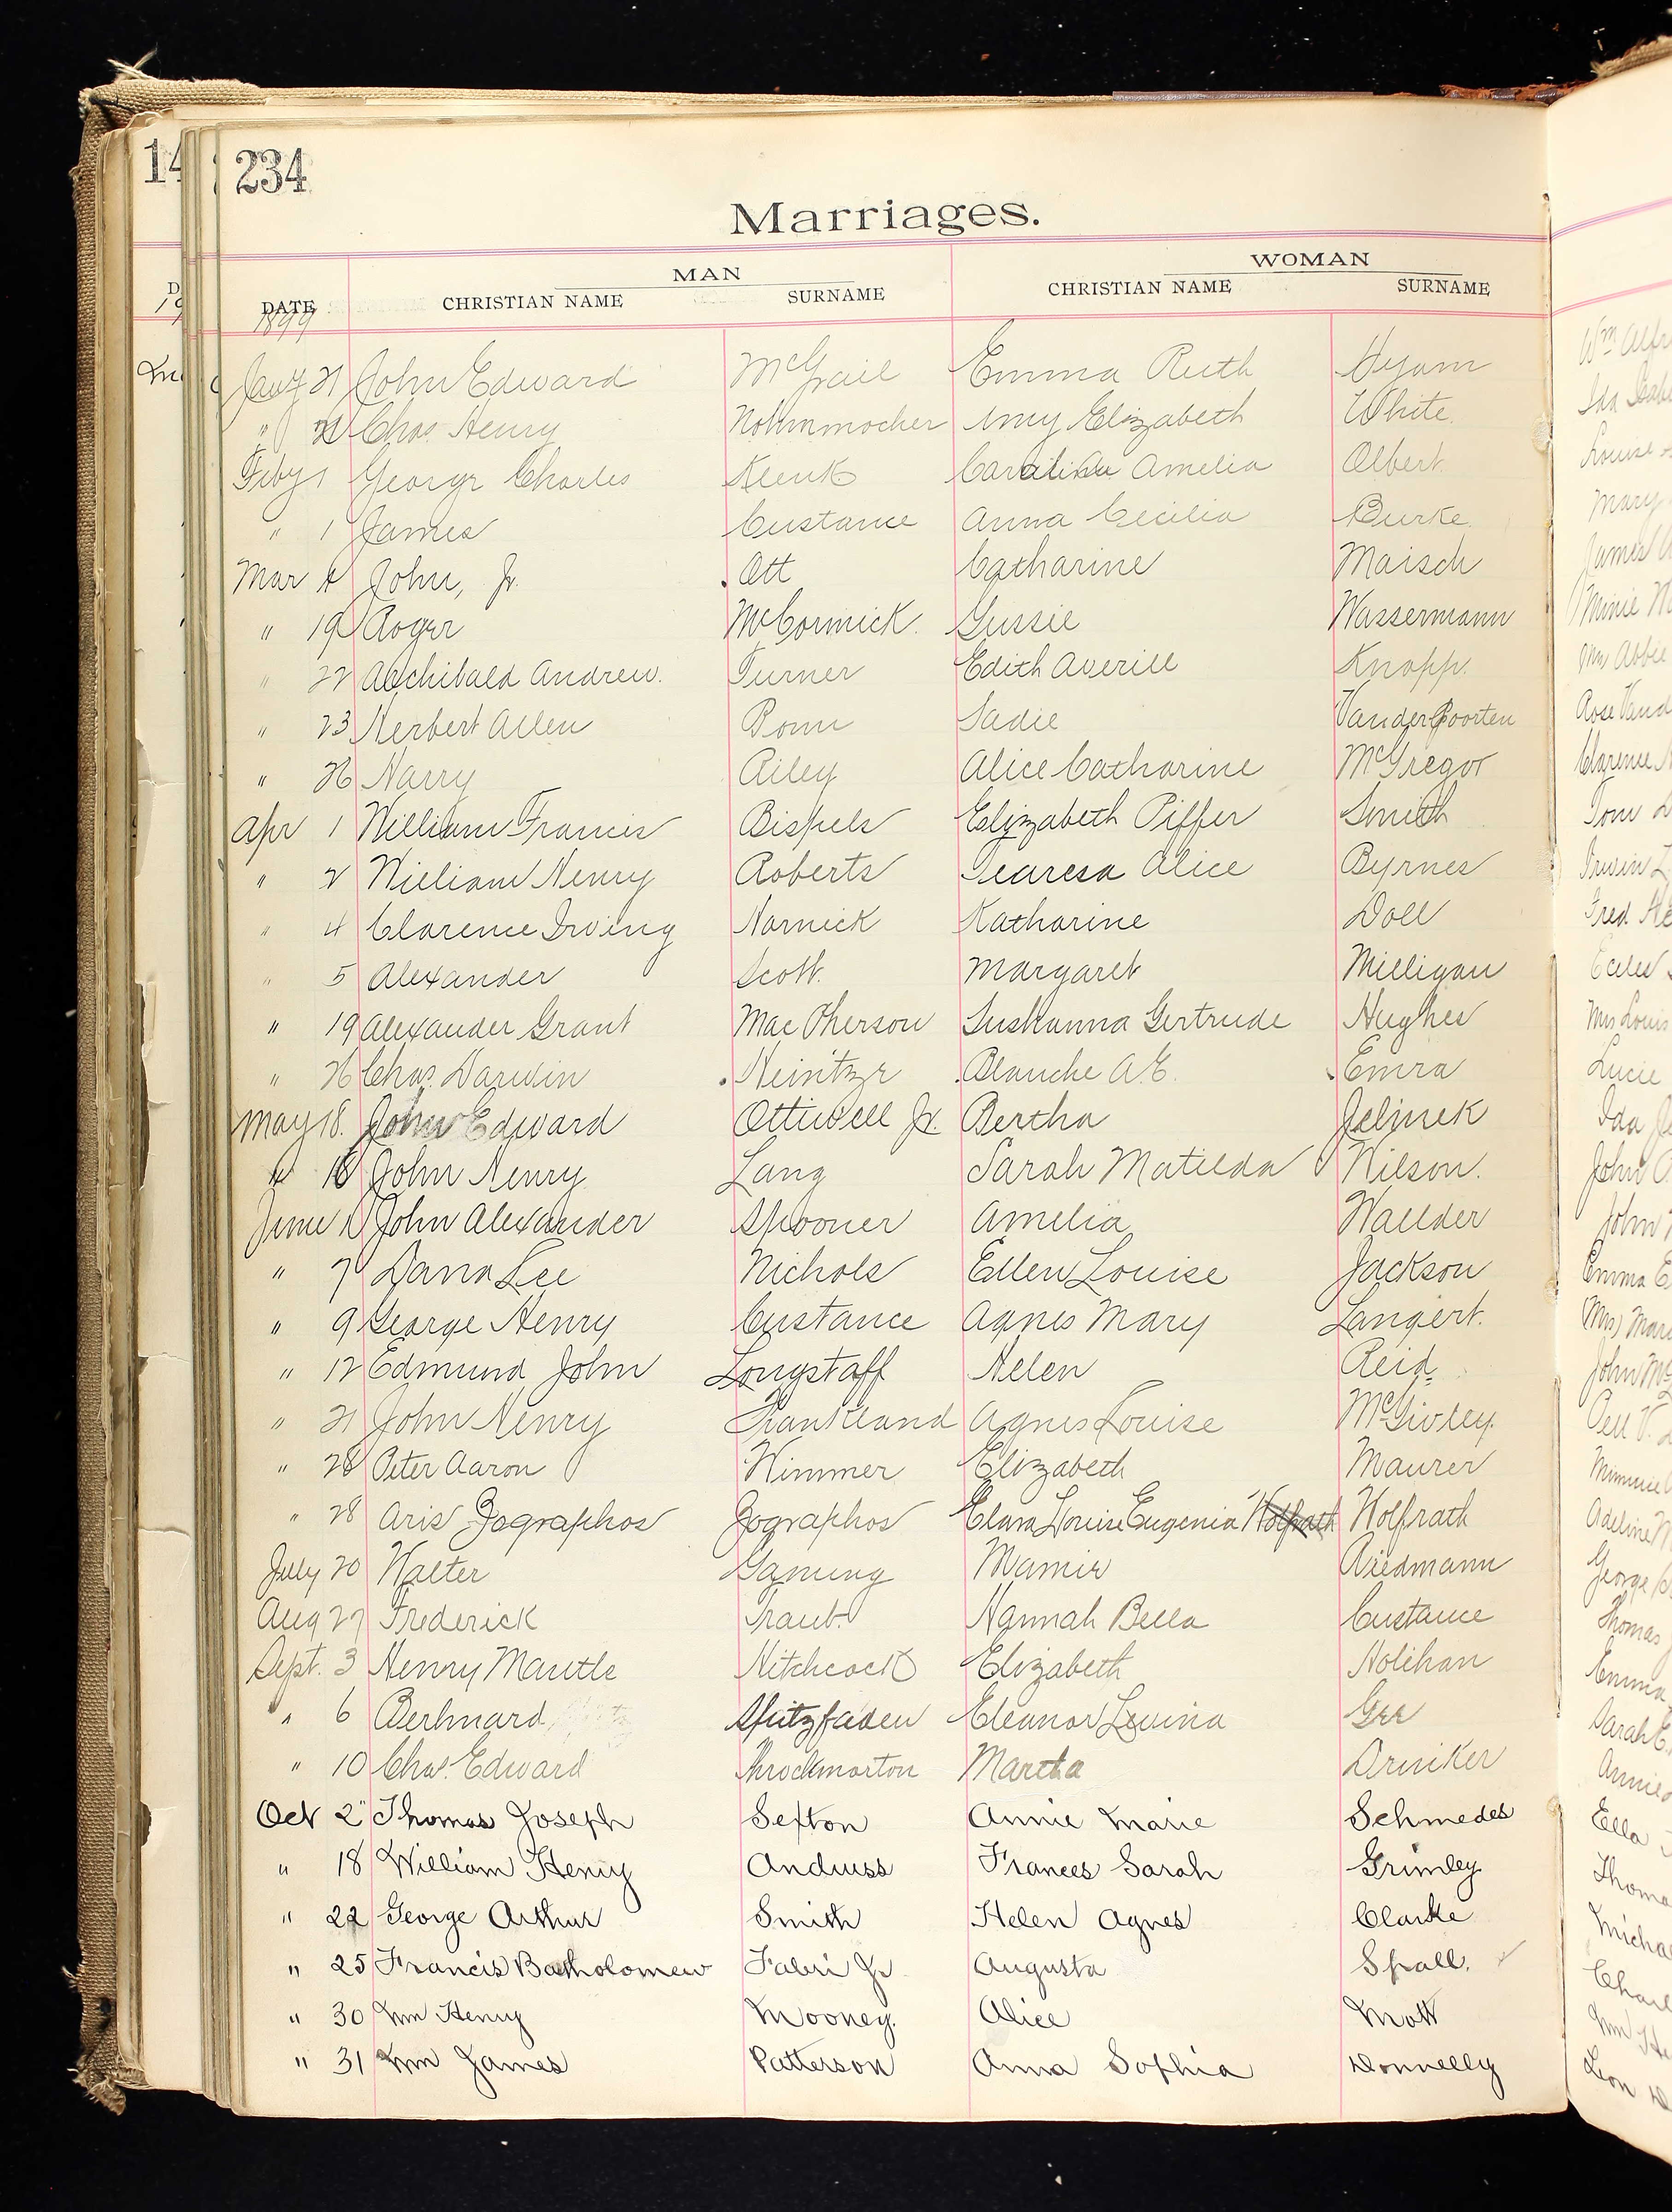 234
Marriages.
MAN WOMAN
DATE CHRISTIAN NAME SURNAME CHRISTIAN NAME SURNAME
1899
Jany 21 John Edward McGrail Emma Ruth Hyam
" Chas. Henry Amy Elizabeth White.
Feby 1 George Charles Klenk Amelia Albert
" 1 James Custance Anna Cecilia Burke
Mar John, Jr. Ott Catharine Maisch
" 19 Roger McCormick. Gussie Wassermann
" 22 Archibald Andrew. Turner Edith Averill Knapp.
" 23 Herbert Allen Sadie VanderPoorten
" 26 Harry Riley Alice Catharine McGregor
Apr 1 William Francis Bispels Elizabeth Piffer Smith
" 2 William Henry Roberts Tearesa Alice Byrnes
" 4 Clarence Irving Warnick Katharine Doll
" 5 Alexander Scott. Margaret Milligan
" 19 Alexander Grant MacPherson Sushanna Gertrude Hughes
" 26 Chas. Darwin Blanche A.E. Emra
May 18. John Edward Ottiwell Jr. Bertha Jelinek
" 18 John Henry Lang Sarah Matilda Wilson.
June 1 John Alexander Spooner Amelia Wallder
" 7 Dana Lee Nichols Ellen Louise Jackson
" 9 George Henry Custance Agnes Mary Langert.
" 12 Edmund John Longstaff Helen Reid
" 21 John Henry Frankland Agnes Louise McGivley.
" 28 Peter Aaron Wimmer Elizabeth Maurer
" 28 Aris Zographos Zographos Clara Louise Eugenia Wolfrath Wolfrath
July 20 Walter Mamie Riedmann
Aug 27 Frederick Traub. Hannah Bella Custance
Sept. 3 Henry Mantle Hitchcock Elizabeth Holihan
" 6 Berhnard Spitzfaden Eleanor Lavina Gee
" 10 Chas. Edward Throckmorton Martha Drinker
Oct 2" Thomas Joseph Sefton Annie Marie Schmedes
" 18 William Henry Andruss Frances Sarah Grimley
" 22 George Arthur Smith Helen Agnes Clarke
" 25 Francis Bartholomew Fabri Jr Augusta Spall.
" 30 Wm Henry Mooney. Alice Mott
" 31 Wm James Patterson Anna Sophia Donnelly